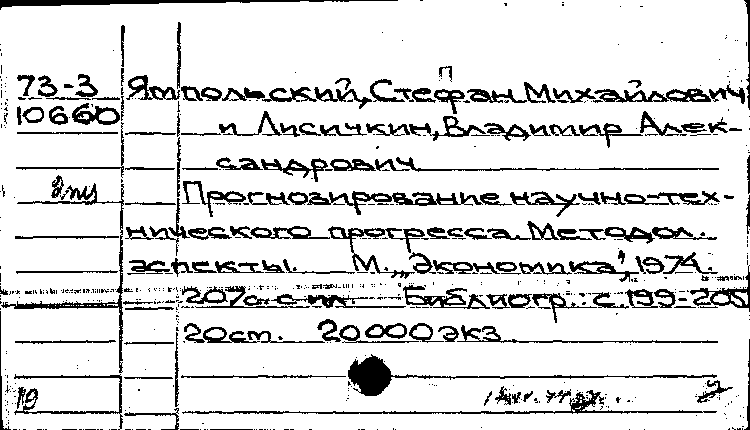 73-3 Ямпольский, Стефан Михайлович
10660 и Лисичкин, Владимир Алек-
сандрович
Прогнозирование научно-тех-
нического прогресса. Методол.
аспекты. М., „Экономика", 1974.
207с. с ил. Библиогр.: с. 199-205
20см. 20000экз.
19